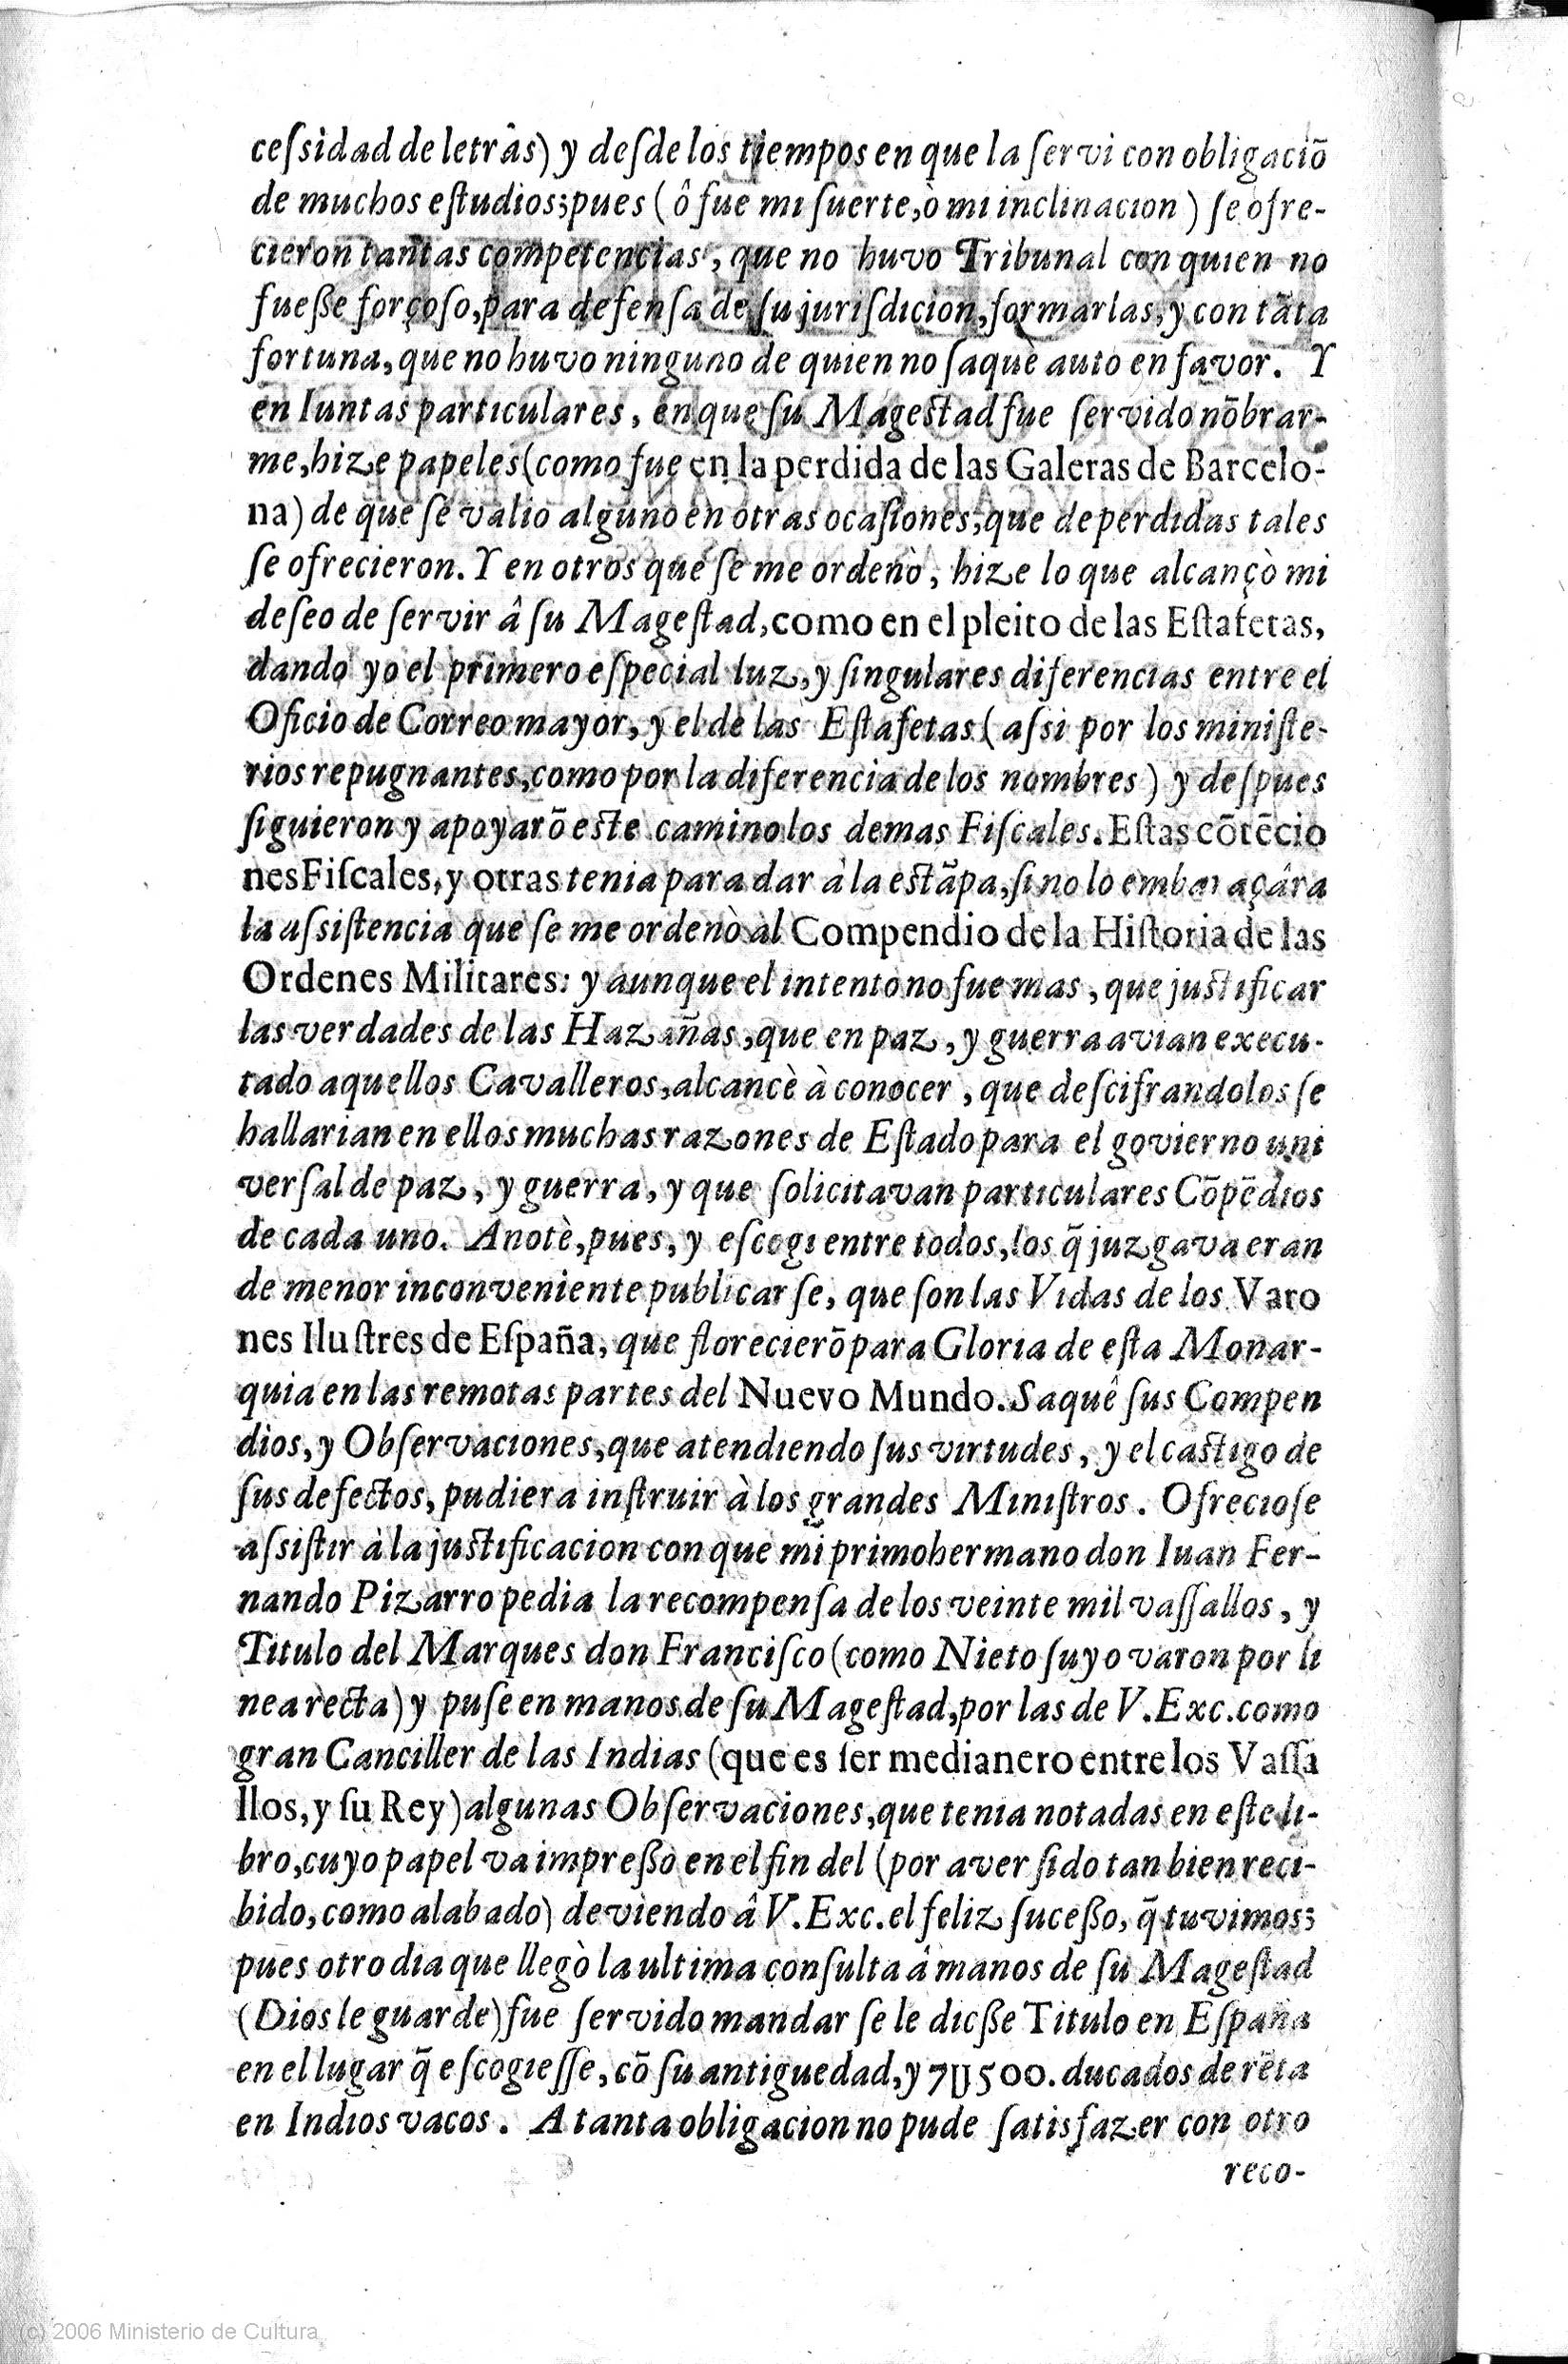 ceſsidad de letrâs) y deſde los tiempos en que la ſervi con obligaciõ
de muchos eſtudios; pues ( ô fue mi ſuerte, ò mi inclinacion ) ſe ofre-
cieron tantas competencias, que no huvo Tribunal con quien no
fueße forçoſo, para defenſa de ſu juriſdicion, formarlas, y con tãta
fortuna, que no huvo ninguno de quien no ſaquè auto en favor. Y
en Iuntas particulares, en que ſu Mageſtad fue ſervido nõbrar-
me, hize papeles (como fue en la perdida de las Galeras de Barcelo-
na) de que ſe valio alguno en otras ocaſiones, que de perdidas tales
ſe ofrecieron. Y en otros que ſe me ordenò, hize lo que alcançò mi
deſeo de ſervir â ſu Mageſtad, como en el pleito de las Eſtafetas,
dando yo el primero eſpecial luz, y ſingulares diferencias entre el
Oficio de Correo mayor, y el de las Eſtafetas ( aſsi por los miniſte-
rios repugnantes, como por la diferencia de los nombres ) y deſpues
ſiguieron y apoyarõ eſte camino los demas Fiſcales. Eſtas cõtẽcio
nes Fiſcales, y otras tenia para dar à la eſtãpa, ſi no lo embaraçâra
la aſsiſtencia que ſe me ordenò al Compendio de la Hiſtoria de las
Ordenes Militares: y aunque el intento no fue mas, que juſtificar
las verdades de las Hazañas, que en paz, y guerra avian execu-
tado aquellos Cavalleros, alcancè à conocer, que deſcifrandolos ſe
hallarian en ellos muchas razones de Eſtado para el govierno uni
verſal de paz, y guerra, y que ſolicitavan particulares Cõpẽdios
de cada uno. Anotè, pues, y eſcogi entre todos, los q̃ juzgava eran
de menor inconveniente publicarſe, que ſon las Vidas de los Varo
nes Iluſtres de Eſpaña, que florecierõ para Gloria de eſta Monar-
quia en las remotas partes del Nuevo Mundo. Saquê ſus Compen
dios, y Obſervaciones, que atendiendo ſus virtudes, y el caſtigo de
ſus defectos, pudiera inſtruir à los grandes Miniſtros. Ofrecioſe
aſsiſtir à la juſtificacion con que mi primohermano don Iuan Fer-
nando Pizarro pedia la recompenſa de los veinte mil vaſſallos, y
Titulo del Marques don Franciſco (como Nieto ſuyo varon por li
nea recta) y puſe en manos de ſu Mageſtad, por las de V. Exc. como
gran Canciller de las Indias (que es ſer medianero entre los Vaſſa
llos, y ſu Rey) algunas Obſervaciones, que tenia notadas en eſte li-
bro, cuyo papel va impreßo en el fin del (por aver ſido tan bien reci-
bido, como alabado) deviendo â V. Exc. el feliz ſuceßo, q̃ tuvimos;
pues otro dia que llegò la ultima conſulta â manos de ſu Mageſtad
(Dios le guarde) fue ſervido mandar ſe le dieße Titulo en Eſpaña
en el lugar q̃ eſcogieſſe, cõ ſu antiguedad, y 7U500. ducados de rẽta
en Indios vacos. A tanta obligacion no pude ſatisfazer con otro
reco-
(c) 2006 Ministerio de Cultura